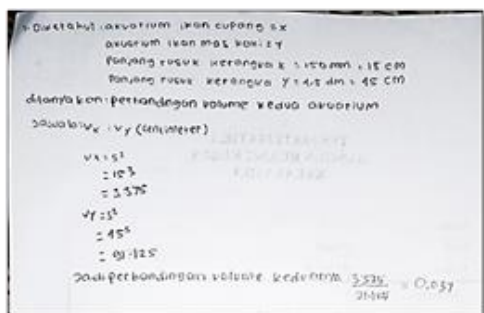 Diketahui: akuarium ikan cupang = x
akuarium ikan mas koki = Y
Panjang rusuk kerangka x = 150 mm = 15 cm
Panjang rusuk kerangka Y = 4,5 dm = 45 cm
ditanyakan: perbandingan volume kedua akuarium
Jawab: Vx : Vy (centimeter)
Vx = s³
= 15³
= 3.375
Vy = s³
= 45³
= 91.125
Jadi perbandingan volume keduanya 3.375 = 0,037